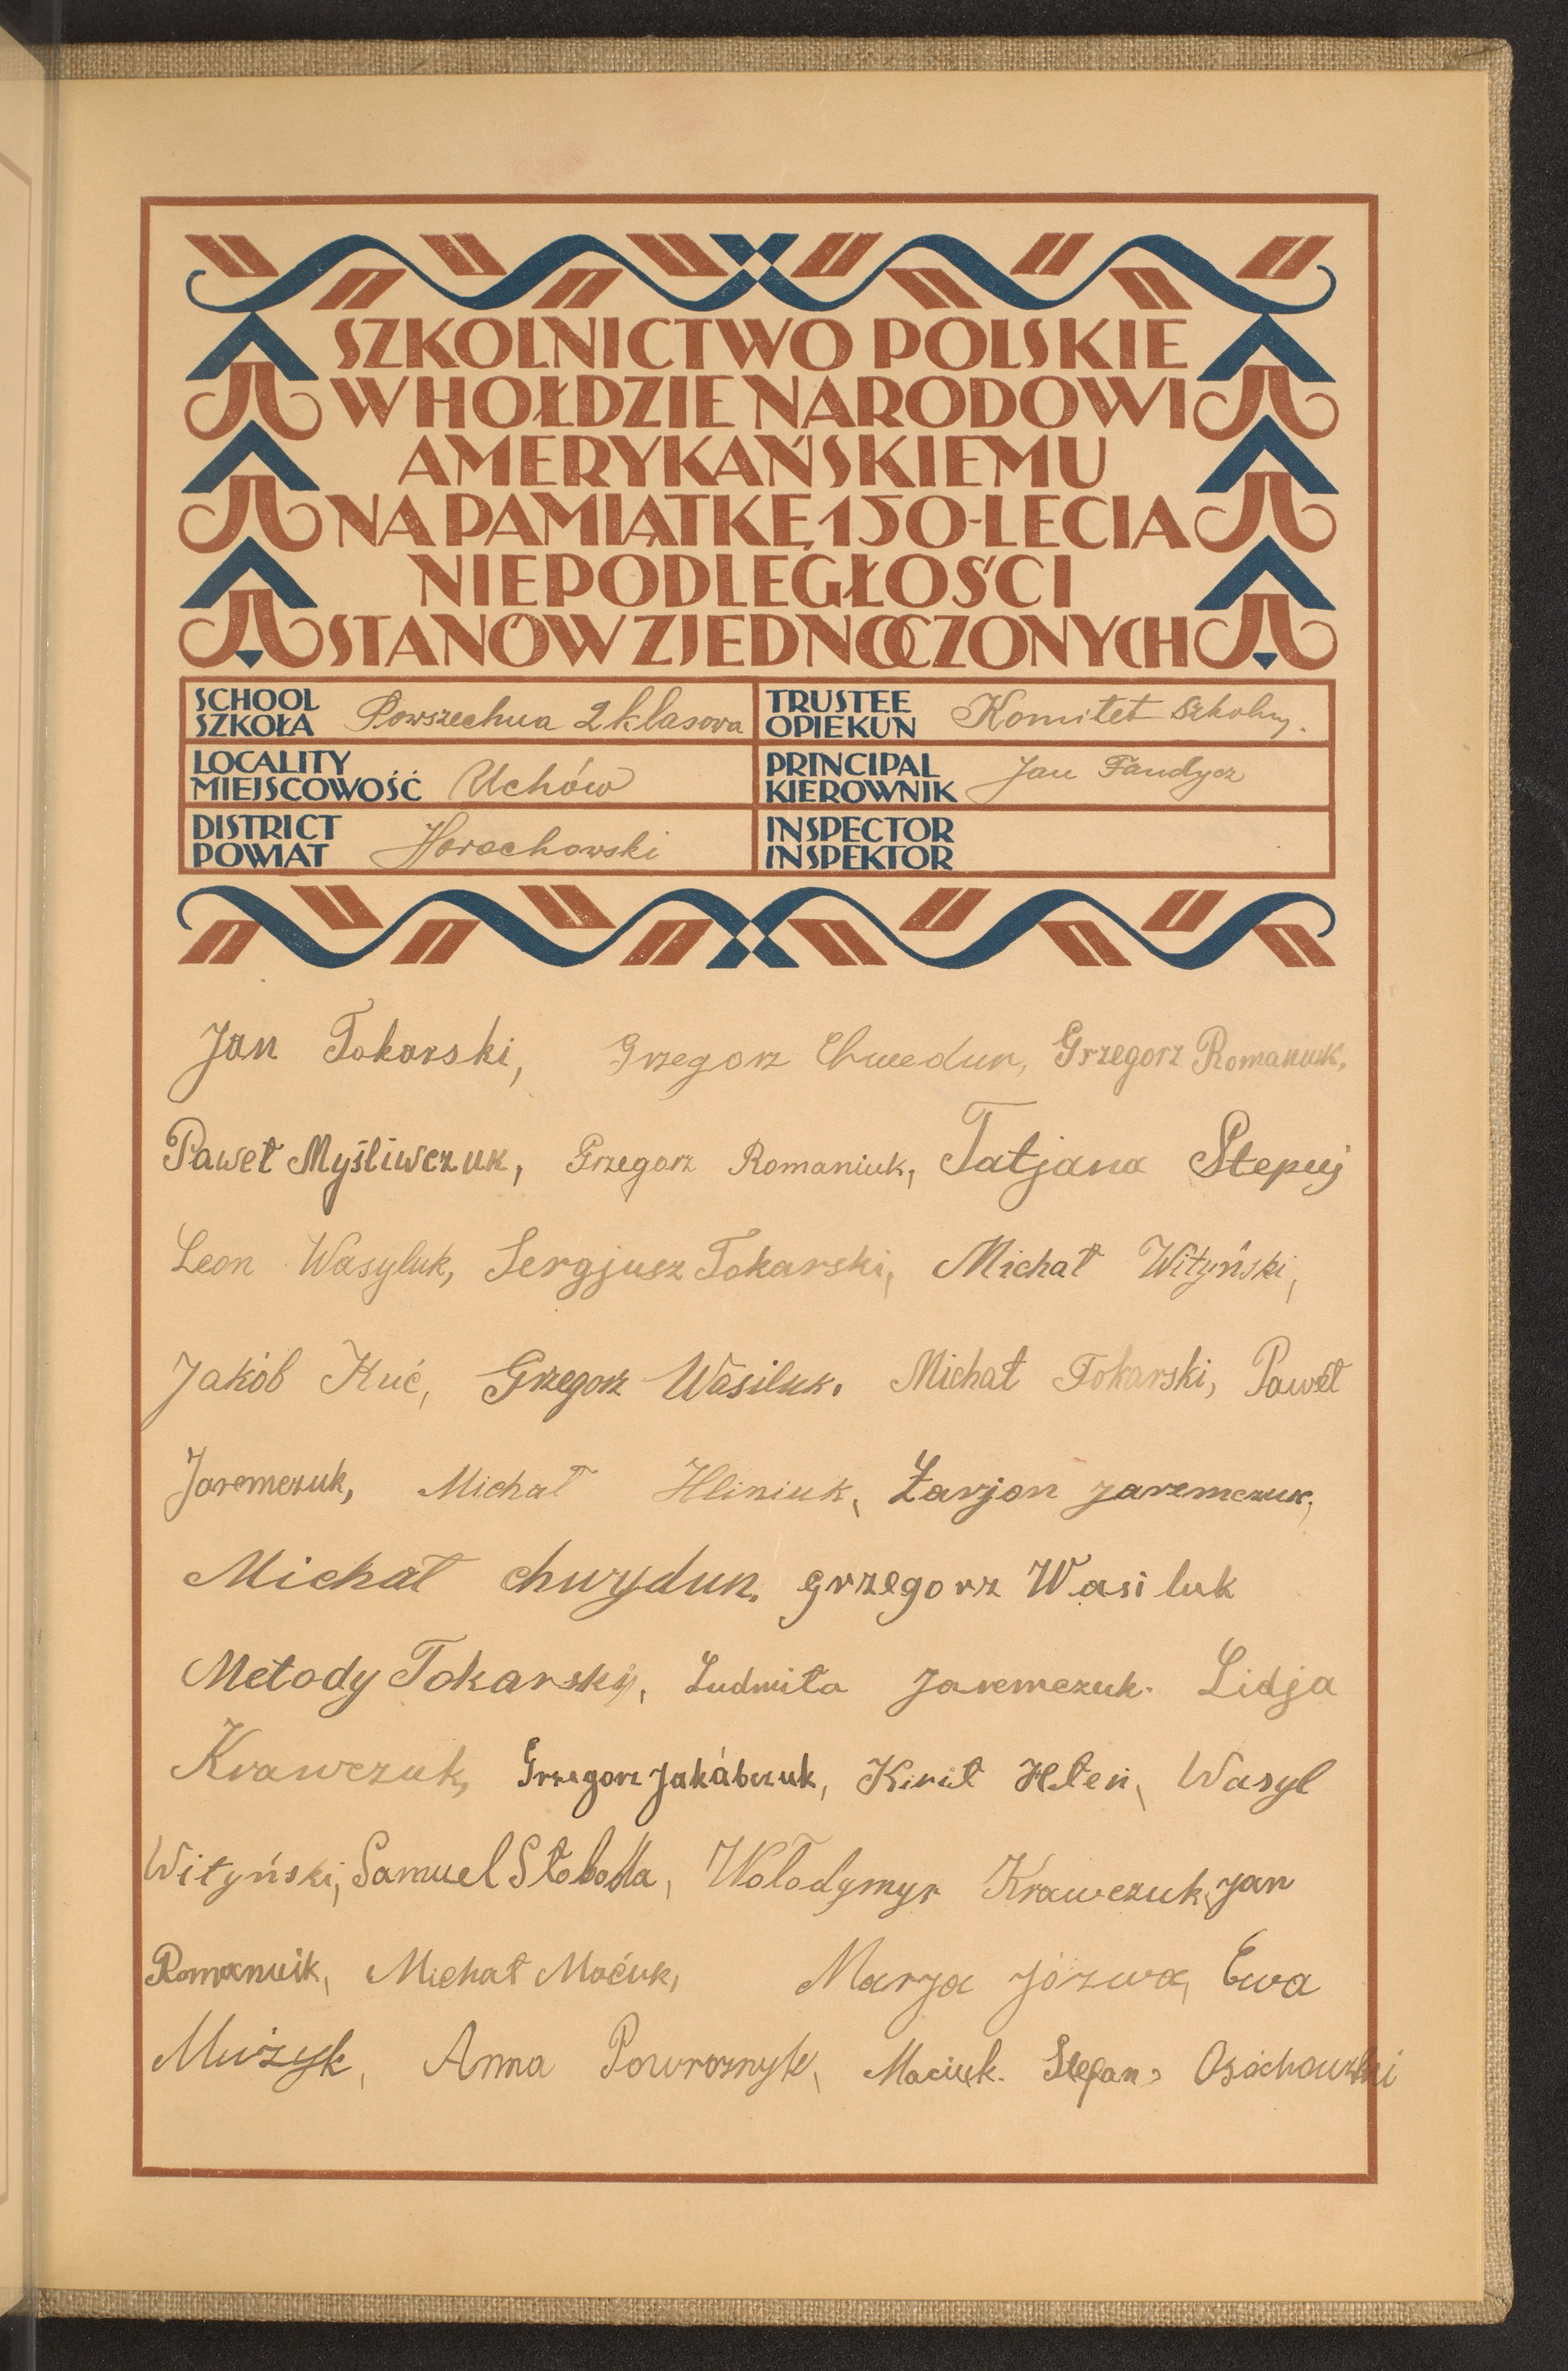 SZKOLNICTWO POLSKIE
W HOŁDZIE NARODOWI
AMERYKAŃSKIEMU
NA PAMIĄTKĘ 150-LECIA
NIEPODLEGŁOŚCI
STANÓW ZJEDNOCZONYCH
SCHOOL
SZKOŁA Powszechna 2 klasowa
TRUSTEE
OPIEKUN Komitet Szkolny.
LOCALITY
MIEJSCOWOŚĆ Uchów
PRINCIPAL
KIEROWNIK Jan Fandycz
DISTRICT
POWIAT Horochowski
INSPECTOR
INSPEKTOR
Jan Tokarski, Grzegorz Chwedun, Grzegorz Romaniuk,
Paweł Myśliwczuk, Grzegorz Romaniuk, Tatjana Stepuj
Leon Wasyluk, Sergjusz Tokarski, Michał Wityński,
Jakób Kuć, Grzegorz Wasiluk. Michał Tokarski, Paweł
Jaremczuk, Michał Hliniuk, Łarjon jaremczuk,
Michał chwydun, grzegorz Wasiluk
Metody Tokarski, Ludmiła Jaremczuk. Lidja
Krawczuk, Grzegorz Jakóbczuk, Kirił Hłeń, Wasyl
Wityński, Samuel Słoboda, Wołodymyr Krawczuk, jan
Romaniuk, Michał Moćuk, Marja józwa, Ewa
Muzyk, Anna Powroznyk, Maciuk. Stefan, Osichowski